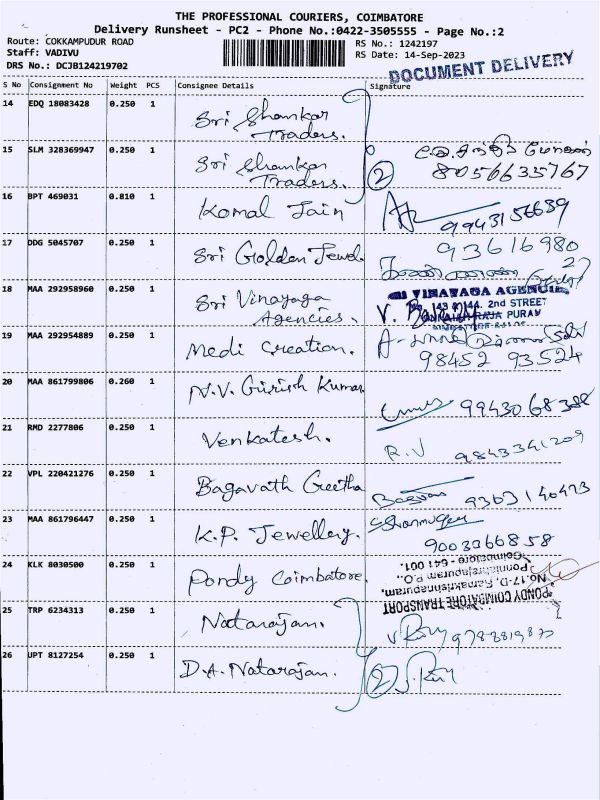 THE PROFESSIONAL COURIERS, COIMBATORE
Delivery Runsheet - PC2 - Phone No.:0422-3505555 - Page No.:2
Route: COKKAMPUDUR ROAD
Staff: VADIVU
DRS No.: DCJB124219702
RS No.: 1242197
RS Date: 14-Sep-2023
DOCUMENT DELIVERY
S No Consignment No Weight PCS Consignee Details Signature
14 EDQ 18083428 0.250 1 Sri Shankar
Traders.
15 SLM 328369947 0.250 1 Sri Shankar
Traders. 2 8056635767
16 BPT 469031 0.810 1 Komal Jain 9943156689
17 DDG 5045707 0.250 1 Sri Golden Jewel 93616980
27
18 MAA 292958960 0.250 1 Sri Vinayaga
Agencies.
SRI VINAYAGA AGENCIES
143 & 144, 2nd STREET
RAJA PURAM
19 MAA 292954889 0.250 1 Medi Creation. 98452 93524
20 MAA 861799806 0.260 1 N.V. Girish Kumar 9943068388
21 RMD 2277806 0.250 1 Venkatesh. R.V 9843341209
22 VPL 220421276 0.250 1 Bagavath Geetha 9363140473
23 MAA 861796447 0.250 1 K.P. Jewellery. Shanmuga
9003066858
24 KLK 8030500 0.250 1 Pondy Coimbatore.
PONDY COIMBATORE TRANSPORT
No.17-D, Ramakrishnapuram,
Ponniahrajapuram P.O.,
Coimbatore - 641 001.
25 TRP 6234313 0.250 1 Natarajan.
26 UPT 8127254 0.250 1 D.A. Natarajan. 2